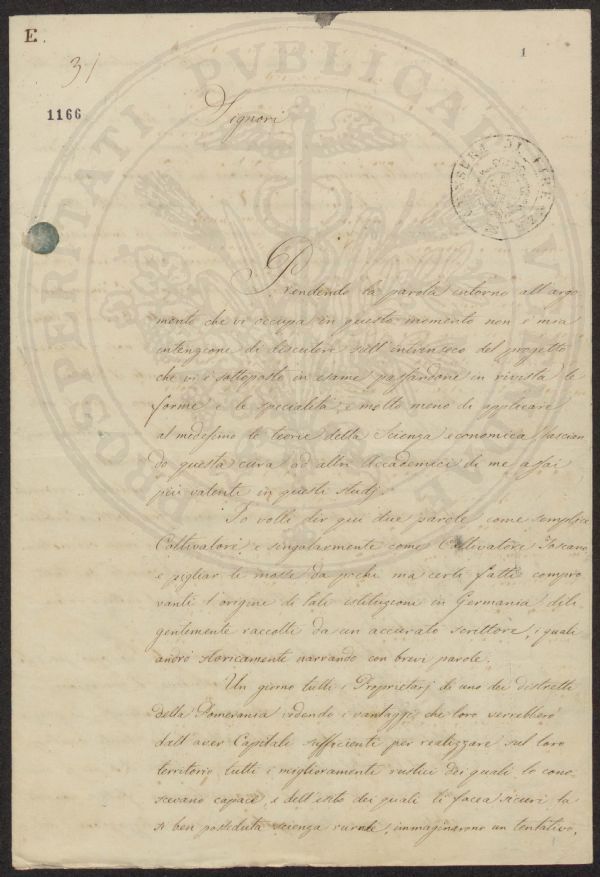 E.
31
1
1166
Signori
PROSPERITATI PVBLICAE
Prendendo la parola intorno all'argo
mento che vi occupa in questo momento non è mia
intenzione di discutere sull'intrinseco del progetto
che vi è sottoposto in esame passandone in rivista le
forme e le specialità, e molto meno di applicare
al medesimo le teorie della Scienza economica lascian
do questa cura ad altri Accademici di me assai
più valenti in questi studj.
Io volli dir qui due parole come semplice
Coltivatore, e singolarmente come Coltivatore Toscano,
e pigliar le mosse da pochi ma certi fatti compro
vanti l'origine di tali istituzioni in Germania dili
gentemente raccolti da un accurato scrittore, i quali
andrò storicamente narrando con brevi parole.
Un giorno tutti i Proprietarj di uno dei distretti
della Pomerania vedendo i vantaggi che loro verrebbero
dall'aver Capitali sufficienti per realizzare sul loro
territorio tutti i miglioramenti rustici dei quali lo cono
scevano capace, e dell'esito dei quali li facea sicuri la
sì ben posseduta scienza rurale, immaginarono un tentativo,